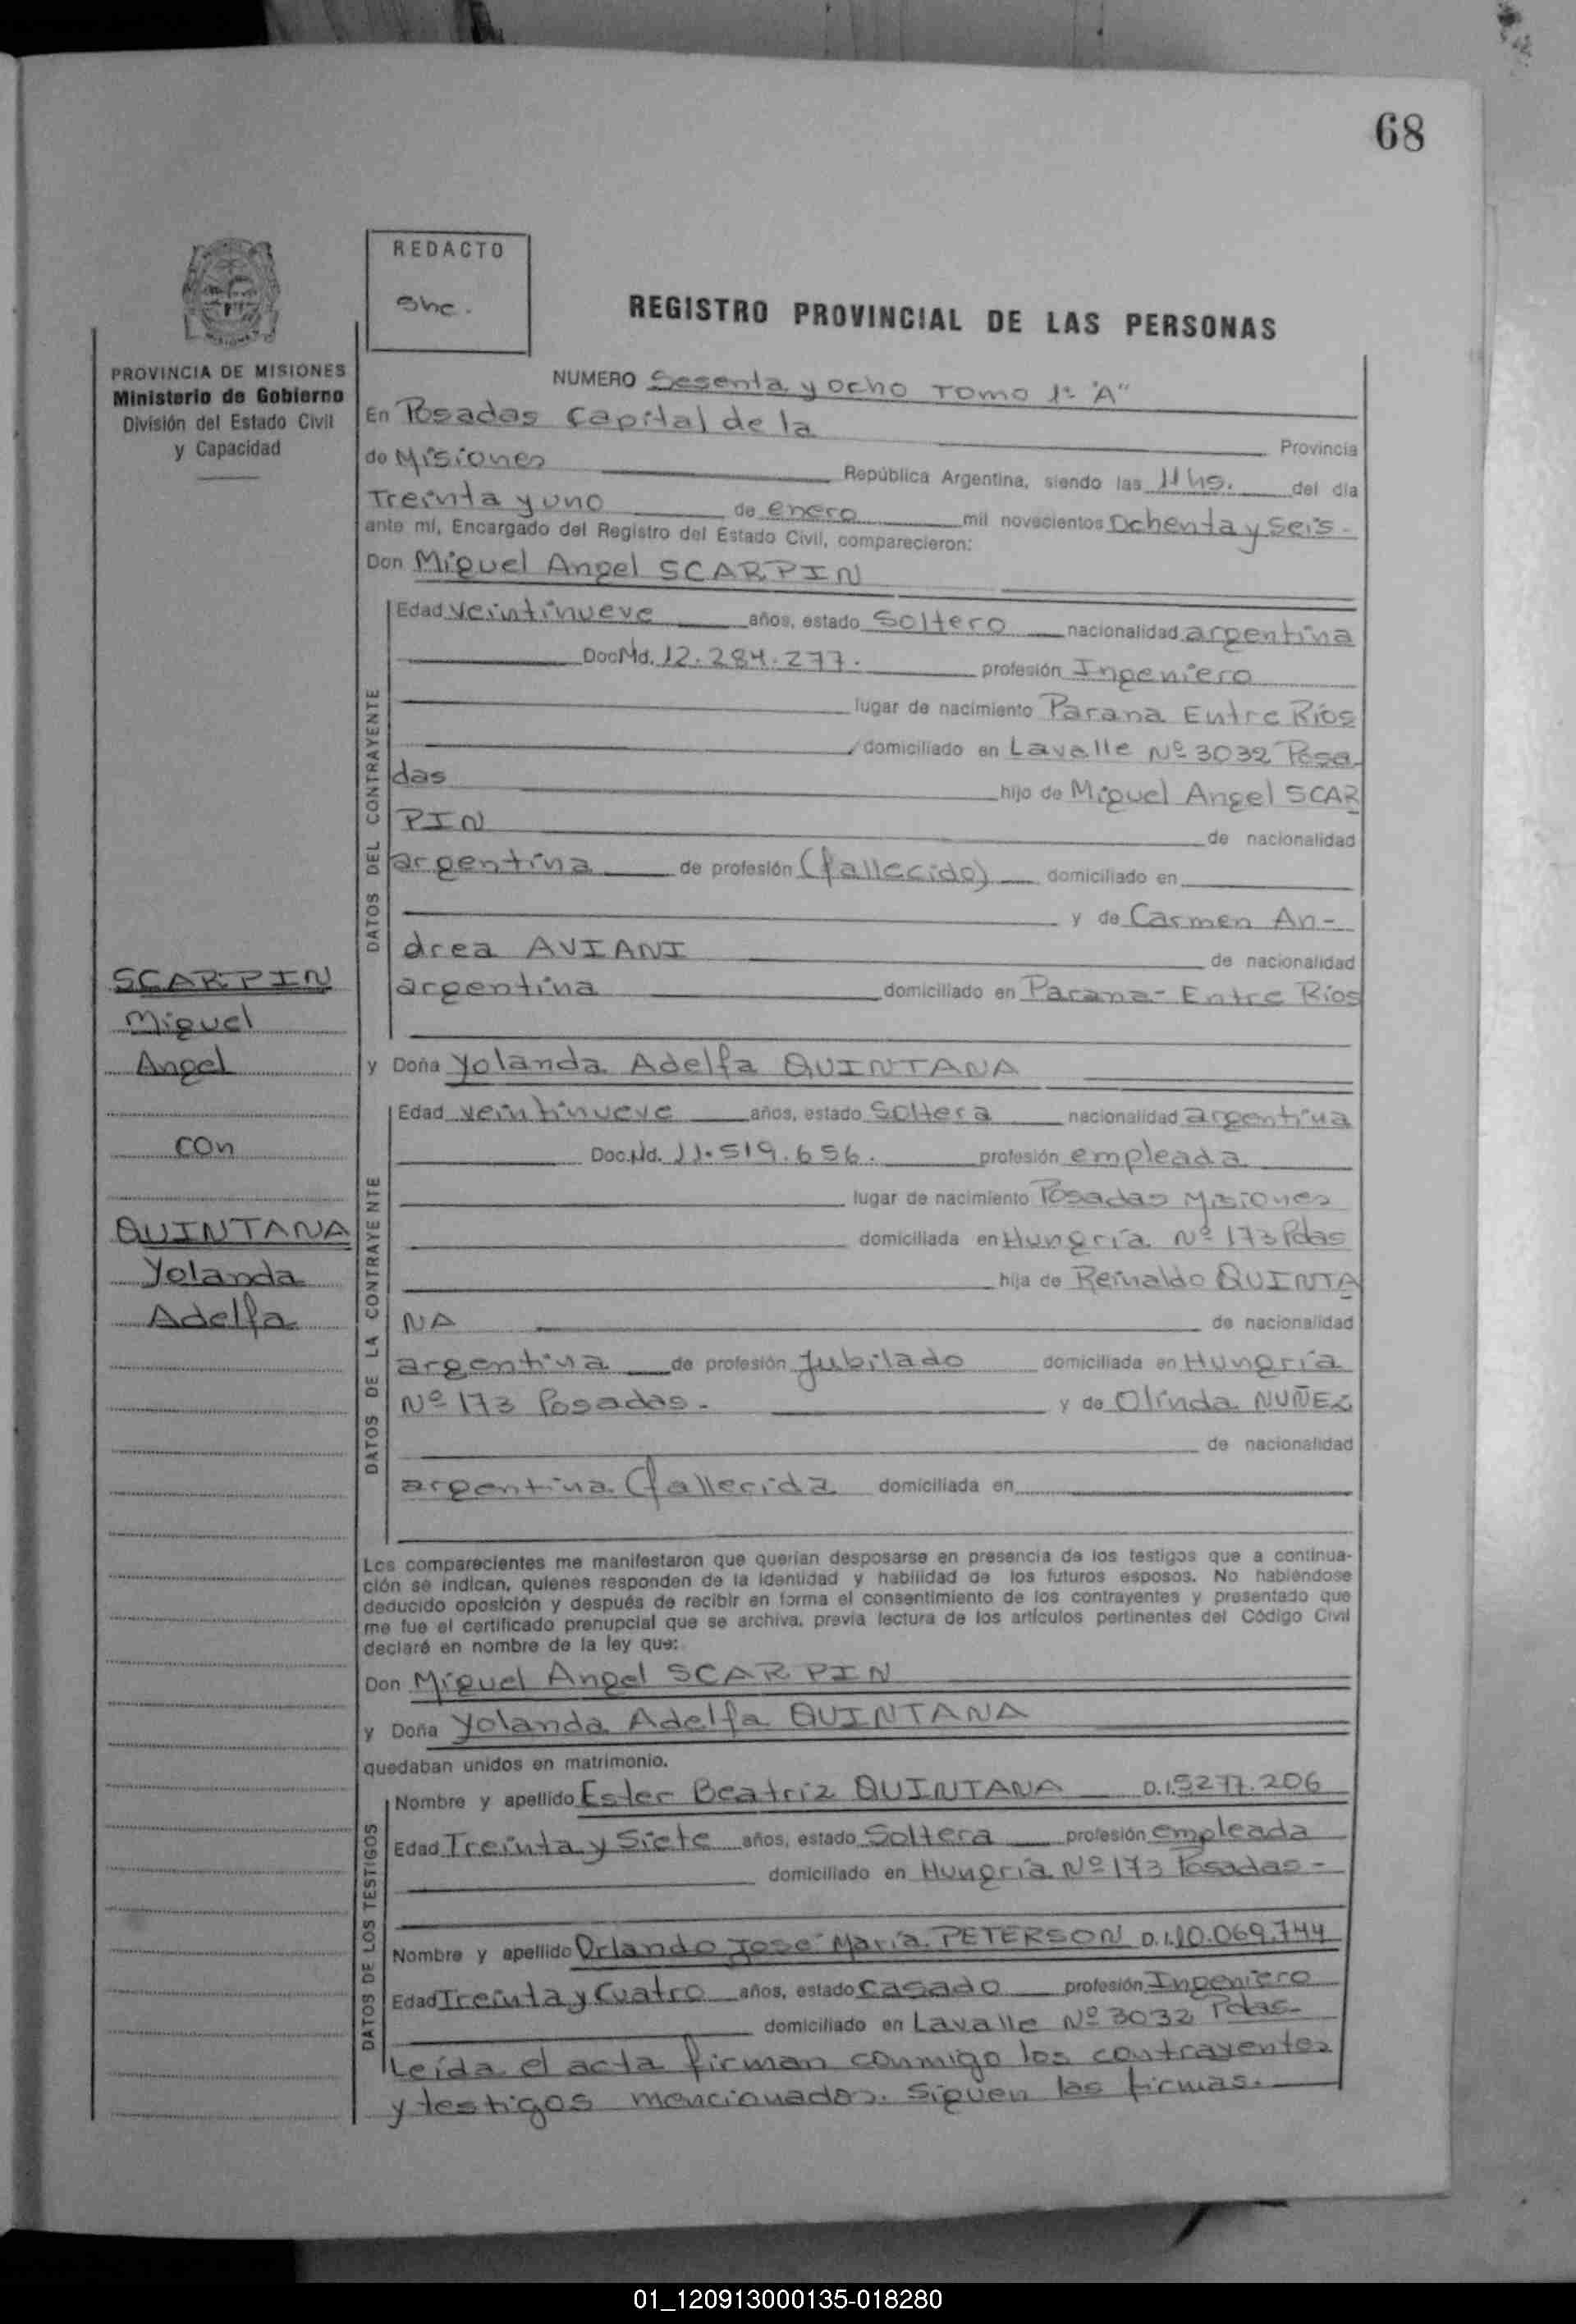 68
REDACTO
Shc.
REGISTRO PROVINCIAL DE LAS PERSONAS
PROVINCIA DE MISIONES
Ministerio de Gobierno
División del Estado Civil
y Capacidad
NUMERO Sesenta y ocho Tomo 1º "A"
En Posadas Capital de la Provincia
de Misiones República Argentina, siendo las 11 hs. del día
Treinta y uno de enero mil novecientos Ochenta y Seis.
ante mí, Encargado del Registro del Estado Civil, comparecieron:
Don Miguel Angel SCARPIN
DATOS DEL CONTRAYENTE
Edad veintinueve años, estado Soltero nacionalidad argentina
Doc.Nd. 12.284.277. profesión Ingeniero
lugar de nacimiento Parana Entre Ríos
domiciliado en Lavalle Nº 3032 Posa
das hijo de Miguel Angel SCAR
PIN de nacionalidad
argentina de profesión (fallecido) domiciliado en
y de Carmen An-
drea AVIANI de nacionalidad
argentina domiciliado en Parana - Entre Ríos
SCARPIN
Miguel
Angel
con
QUINTANA
Yolanda
Adelfa
y Doña Yolanda Adelfa QUINTANA
DATOS DE LA CONTRAYENTE
Edad veintinueve años, estado Soltera nacionalidad argentina
Doc.Nd. 11.519.656. profesión empleada
lugar de nacimiento Posadas Misiones
domiciliada en Hungría Nº 173 Pdas
hija de Reinaldo QUINTA
NA de nacionalidad
argentina de profesión Jubilado domiciliada en Hungría
Nº 173 Posadas. y de Olinda NUÑEZ
de nacionalidad
argentina (fallecida domiciliada en
Los comparecientes me manifestaron que querían desposarse en presencia de los testigos que a continua-
ción se indican, quienes responden de la identidad y habilidad de los futuros esposos. No habiéndose
deducido oposición y después de recibir en forma el consentimiento de los contrayentes y presentado que
me fue el certificado prenupcial que se archiva, previa lectura de los artículos pertinentes del Código Civil
declaré en nombre de la ley que:
Don Miguel Angel SCARPIN
y Doña Yolanda Adelfa QUINTANA
quedaban unidos en matrimonio.
DATOS DE LOS TESTIGOS
Nombre y apellido Ester Beatriz QUINTANA D.I. 5277.206
Edad Treinta y Siete años, estado Soltera profesión empleada
domiciliado en Hungría Nº 173 Posadas -
Nombre y apellido Orlando José María PETERSON D.I. 10.069.744
Edad Treinta y Cuatro años, estado casado profesión Ingeniero
domiciliado en Lavalle Nº 3032 Pdas-
Leída el acta firman conmigo los contrayentes
y testigos mencionados. Siguen las firmas.
01_120913000135-018280